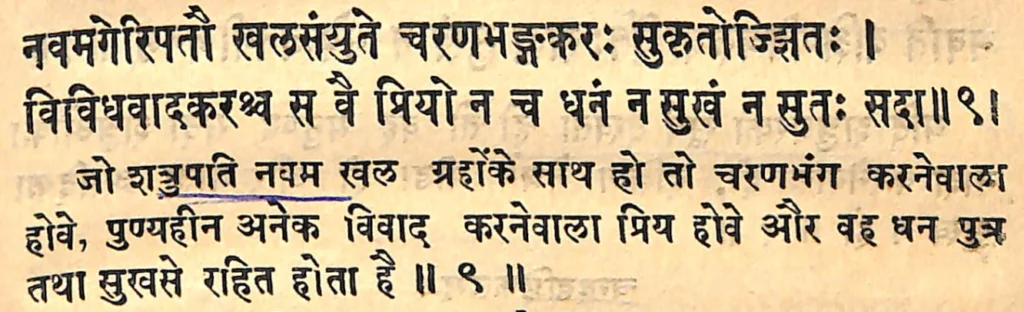 नवमगेरिपतौ खलसंयुते चरणभङ्गकरः सुकृतोज्झितः ।
विविधवादकरश्च स वै प्रियो न च धनं न सुखं न सुतः सदा॥९।
जो शत्रुपति नवम खल ग्रहोंके साथ हो तो चरणभंग करनेवाला
होवे, पुण्यहीन अनेक विवाद करनेवाला प्रिय होवे और वह धन पुत्र
तथा सुखसे रहित होता है ॥ ९ ॥